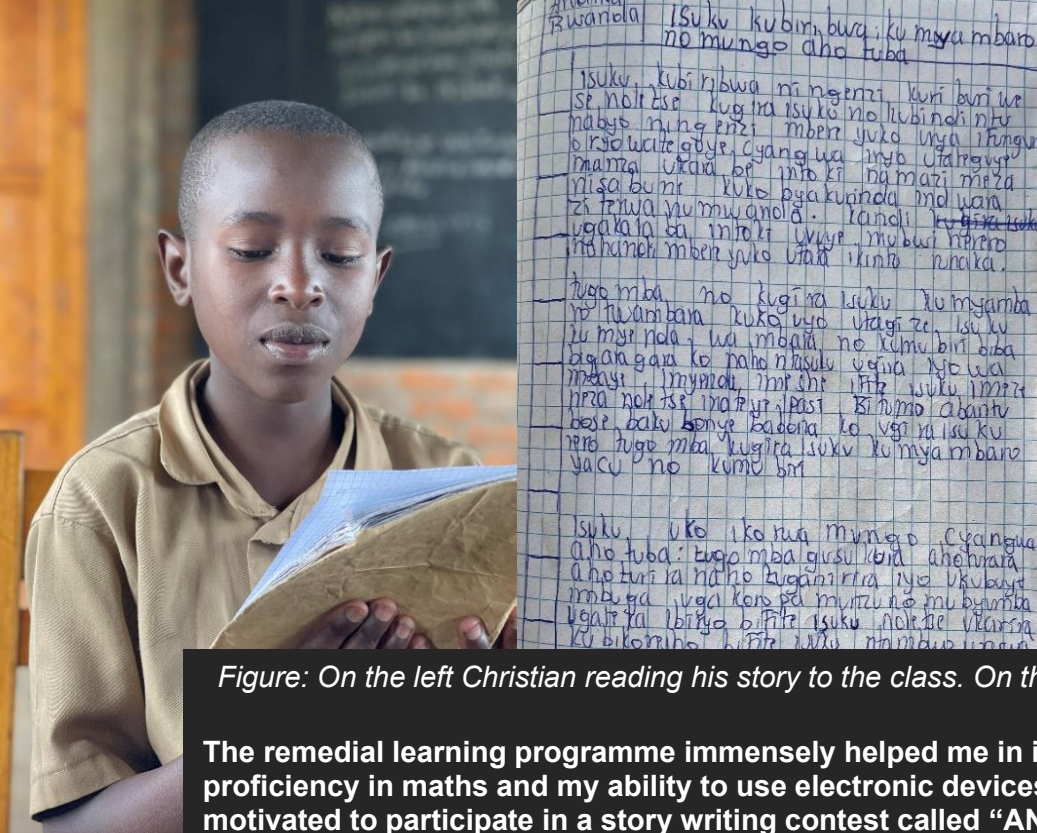 Rwanda
Isuku kubiri, bwa, ku mya mbaro
no mungo aho tuba
Isuku, kubiribwa ni ngenzi kuri buri we
se, nole tse kugira isuku no kubindi ntu
nabyo ni ng enzi mbere yuko urya ifungur
o ryo wate guye, cyang wa
mama ukara be into ki na mazi meza
nisa bune kuko bya kurinda ind wara
zi terwa nu mwanda. kandi
ugakara ba, into ki uvuye, mu bwi herero
mbere yuko ufata ikintu runaka.
tugo mba no kugi ra isuku ku myamba
ro twambara kuko iyo utagi ze, isu ku
ku mye nda, wa mbara, no kumu biri biba
biga ra gara ko naho ntasuku ugira iyo wa
mbaye imyenda, ime she ifite isuku imeze
neza nole tse inateye, ipasi Bi tumo abantu
bose, baku bonye babona ko ugi ra isu ku
rero tugo mba, kugira isuku ku mya mbaro
yacu no kumu biri
Isuku, uko iko rwa mungo, cyangwa
aho tuba: tugo mba gusu kura ahoturara
aho turi ra naho tuganirira iyo ukubuye
imbuga, uga koro pa munzu no mu byumba
ugate ka ibiryo bifite isuku, nole tse
ku bikoresho bifite isuku
Figure: On the left Christian reading his story to the class. On
The remedial learning programme immensely helped me in
proficiency in maths and my ability to use electronic devices
motivated to participate in a story writing contest called “AN